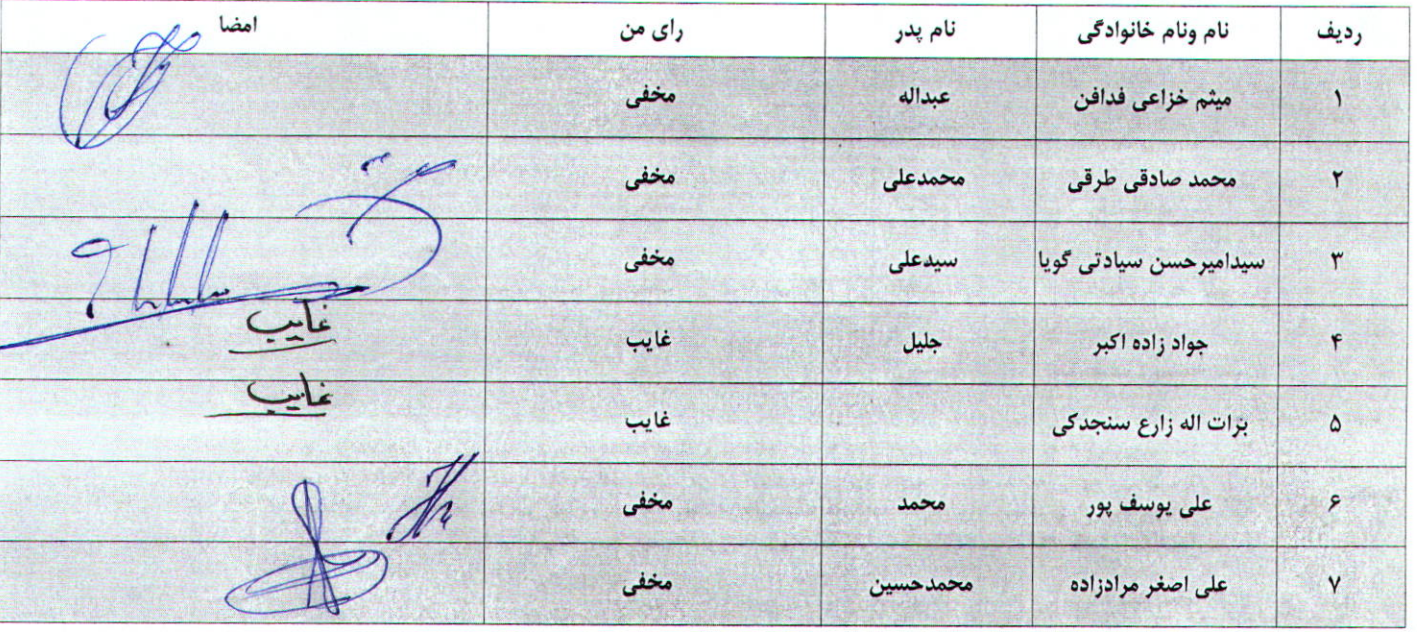 ردیف نام ونام خانوادگی نام پدر رای من امضا
۱ میثم خزاعی فدافن عبداله مخفی
۲ محمد صادقی طرقی محمدعلی مخفی
۳ سیدامیرحسن سیادتی گویا سیدعلی مخفی
۴ جواد زاده اکبر جلیل غایب غایب
۵ برات اله زارع سنجدکی غایب غایب
۶ علی یوسف پور محمد مخفی
۷ علی اصغر مرادزاده محمدحسین مخفی